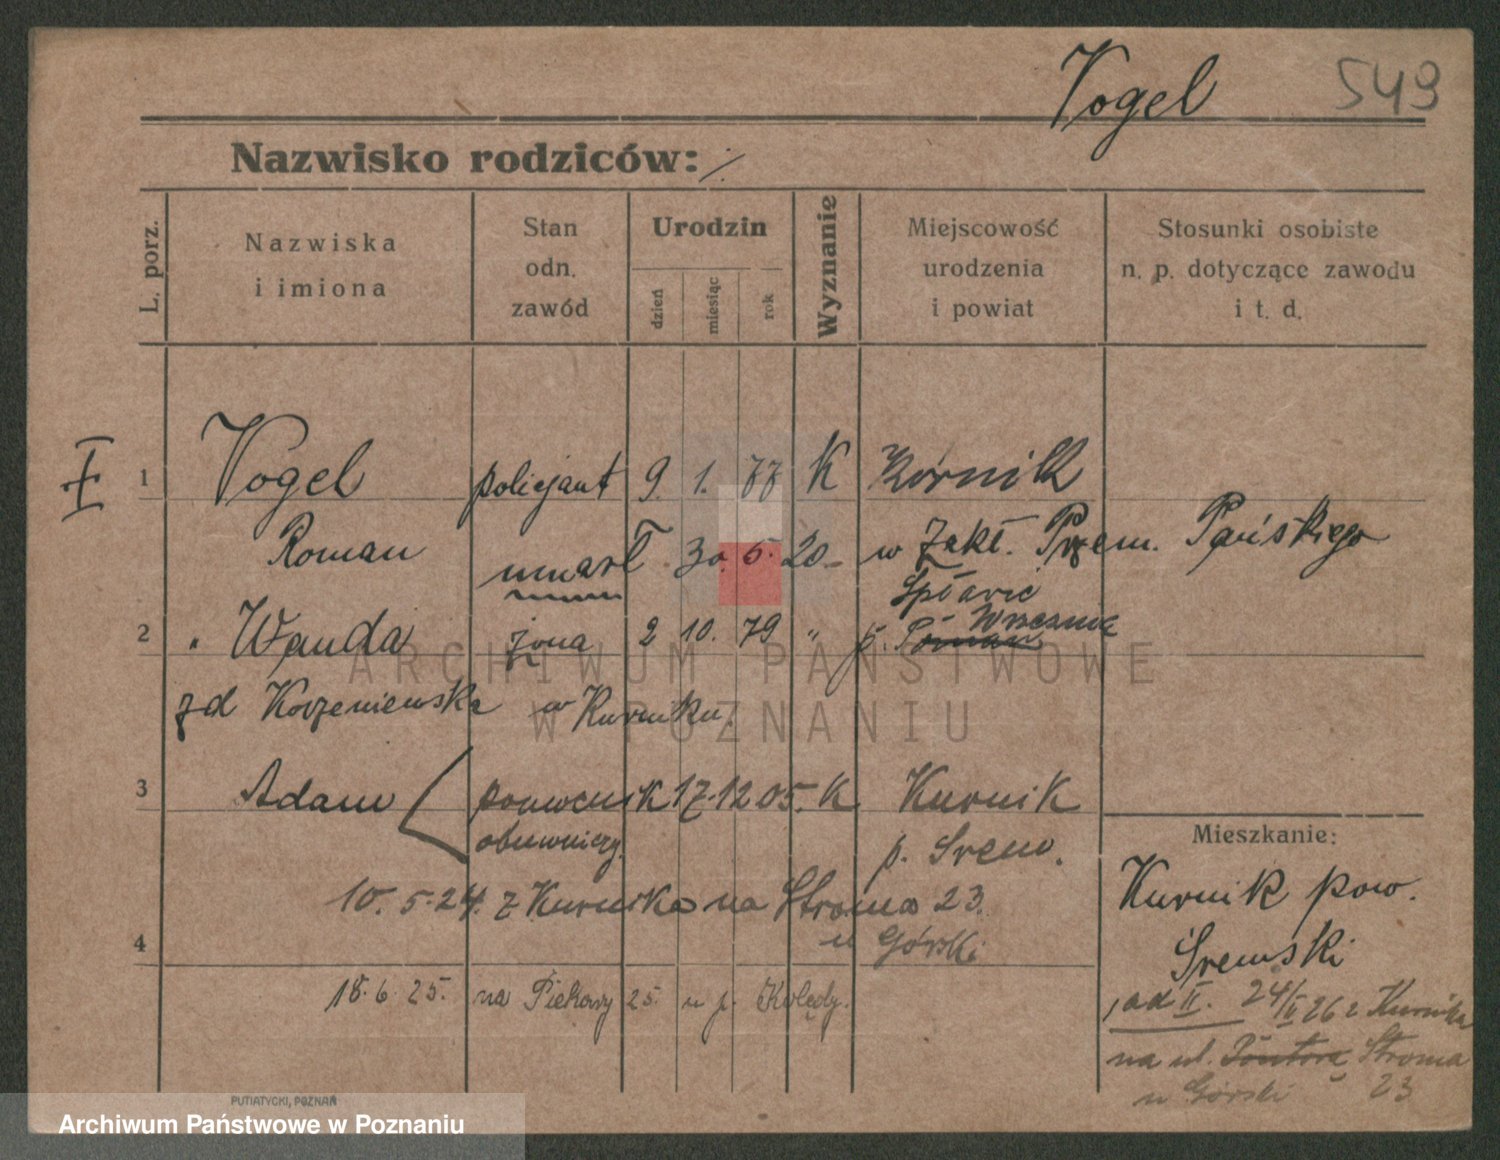 Vogel 549
Nazwisko rodziców: ./.
L. porz.
Nazwiska
i imiona
Stan
odn.
zawód
Urodzin
dzień
miesiąc
rok
Wyznanie
Miejscowość
urodzenia
i powiat
Stosunki osobiste
n. p. dotyczące zawodu
i t. d.
I 1 Vogel policjant 9. 1. 77 K Kórnik
Roman umarł 30. 5. 20 w Zakł. Przem. Pańskiego
Spławie
2 " Wanda żona 2 10. 79 " p. Poznań Września
zd Korzeniewska w Kurniku.
3 Adam pomocnik 17. 12 05. K Kurnik
obuwniczy. p. Srem.
10. 5. 24. z Kurnika na Stroma 23.
u Górski
4
18. 6. 25. na Piekary 25. u p. Kolędy.
Mieszkanie:
Kurnik pow.
Śremski
ad II. 24/II 26 z Kurnika
na ul. Stroma
u Górski 23
PUTIATYCKI, POZNAŃ
ARCHIWUM PAŃSTWOWE
W POZNANIU
Archiwum Państwowe w Poznaniu